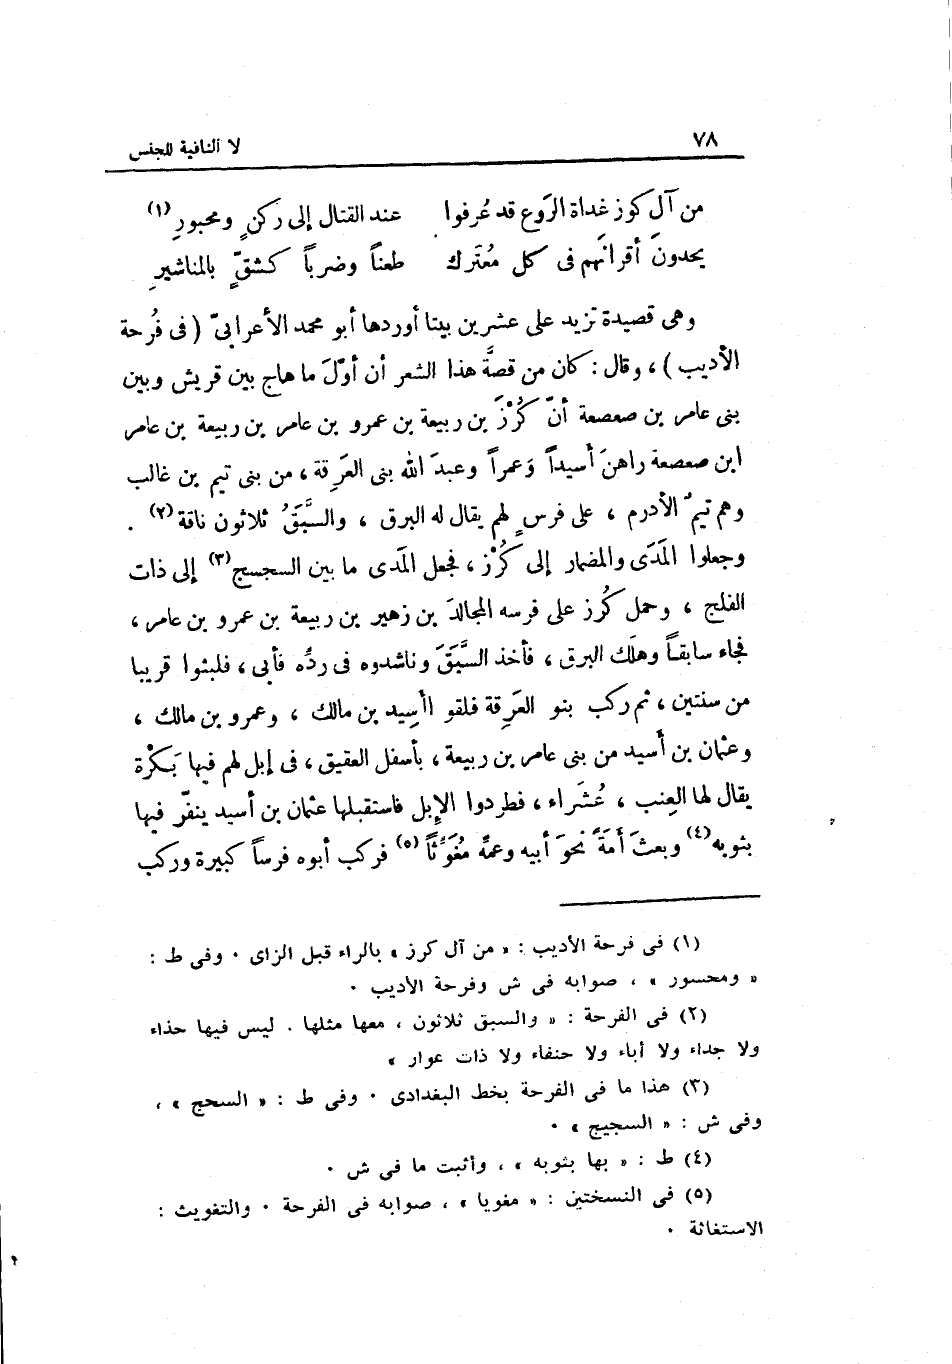 ٧٨ لا النافية للجنس
من آلِ كوز غداةَ الرَوع قد عُرفوا عند القتال إلى ركنٍ ومحبورِ (١)
يحدونَ أقرانَهم فى كل مُعتَرك طعناً وضرباً كشقٍّ بالمناشيرِ
وهى قصيدة تزيد على عشرين بيتا أوردها أبو محمد الأعرابىّ (فى فُرحة
الأديب) ، وقال : كان من قصَّة هذا الشعر أن أوّلَ ما هاج بين قريش وبين
بنى عامر بن صعصعة أنّ كُرْزَ بن ربيعة بن عمرو بن عامر بن ربيعة بن عامر
ابن صعصعة راهنَ أسيداً وَعمراً وعبدَ الله بنى العَرِقة ، من بنى تيم بن غالب
وهم تيمُ الأدرم ، على فرسٍ لهم يقال له البرق ، والسَّبَقُ ثلاثون ناقة (٢) .
وجعلوا المَدَى والمضمار إلى كُرْز ، فجعل المَدى ما بين السجسج (٣) إلى ذات
الفلج ، وحمل كُرز على فرسه المجالدَ بن زهير بن ربيعة بن عمرو بن عامر ،
فجاء سابقاً وهلك البرق ، فأخذ السَّبَقَ وناشدوه فى ردِّه فأبى ، فلبثوا قريبا
من سنتين ، ثم ركب بنو العَرِقة فلقو اأسيد بن مالك ، وعمرو بن مالك ،
وعثمان بن أسيد من بنى عامر بن ربيعة ، بأسفل العقيق ، فى إبل لهم فيها بَكْرة
يقال لها العِنب ، عُشَراء ، فطردوا الإبل فاستقبلها عثمان بن أسيد ينفّر فيها
بثوبه (٤) وبعثَ أمَةً نحوَ أبيه وعمِّه مُغَوِّثاً (٥) فركب أبوه فرساً كبيرة وركب
(١) فى فرحة الأديب : « من آل كرز » بالراء قبل الزاى . وفى ط :
« ومحسور » ، صوابه فى ش وفرحة الأديب .
(٢) فى الفرحة : « والسبق ثلاثون ، معها مثلها . ليس فيها حذاء
ولا جداء ولا أباء ولا حنفاء ولا ذات عوار »
(٣) هذا ما فى الفرحة بخط البغدادى . وفى ط : « السحج » ،
وفى ش : « السجيج » .
(٤) ط : « بها بثوبه » ، وأثبت ما فى ش .
(٥) فى النسختين : « مغويا » ، صوابه فى الفرحة . والتغويث :
الاستغاثة .